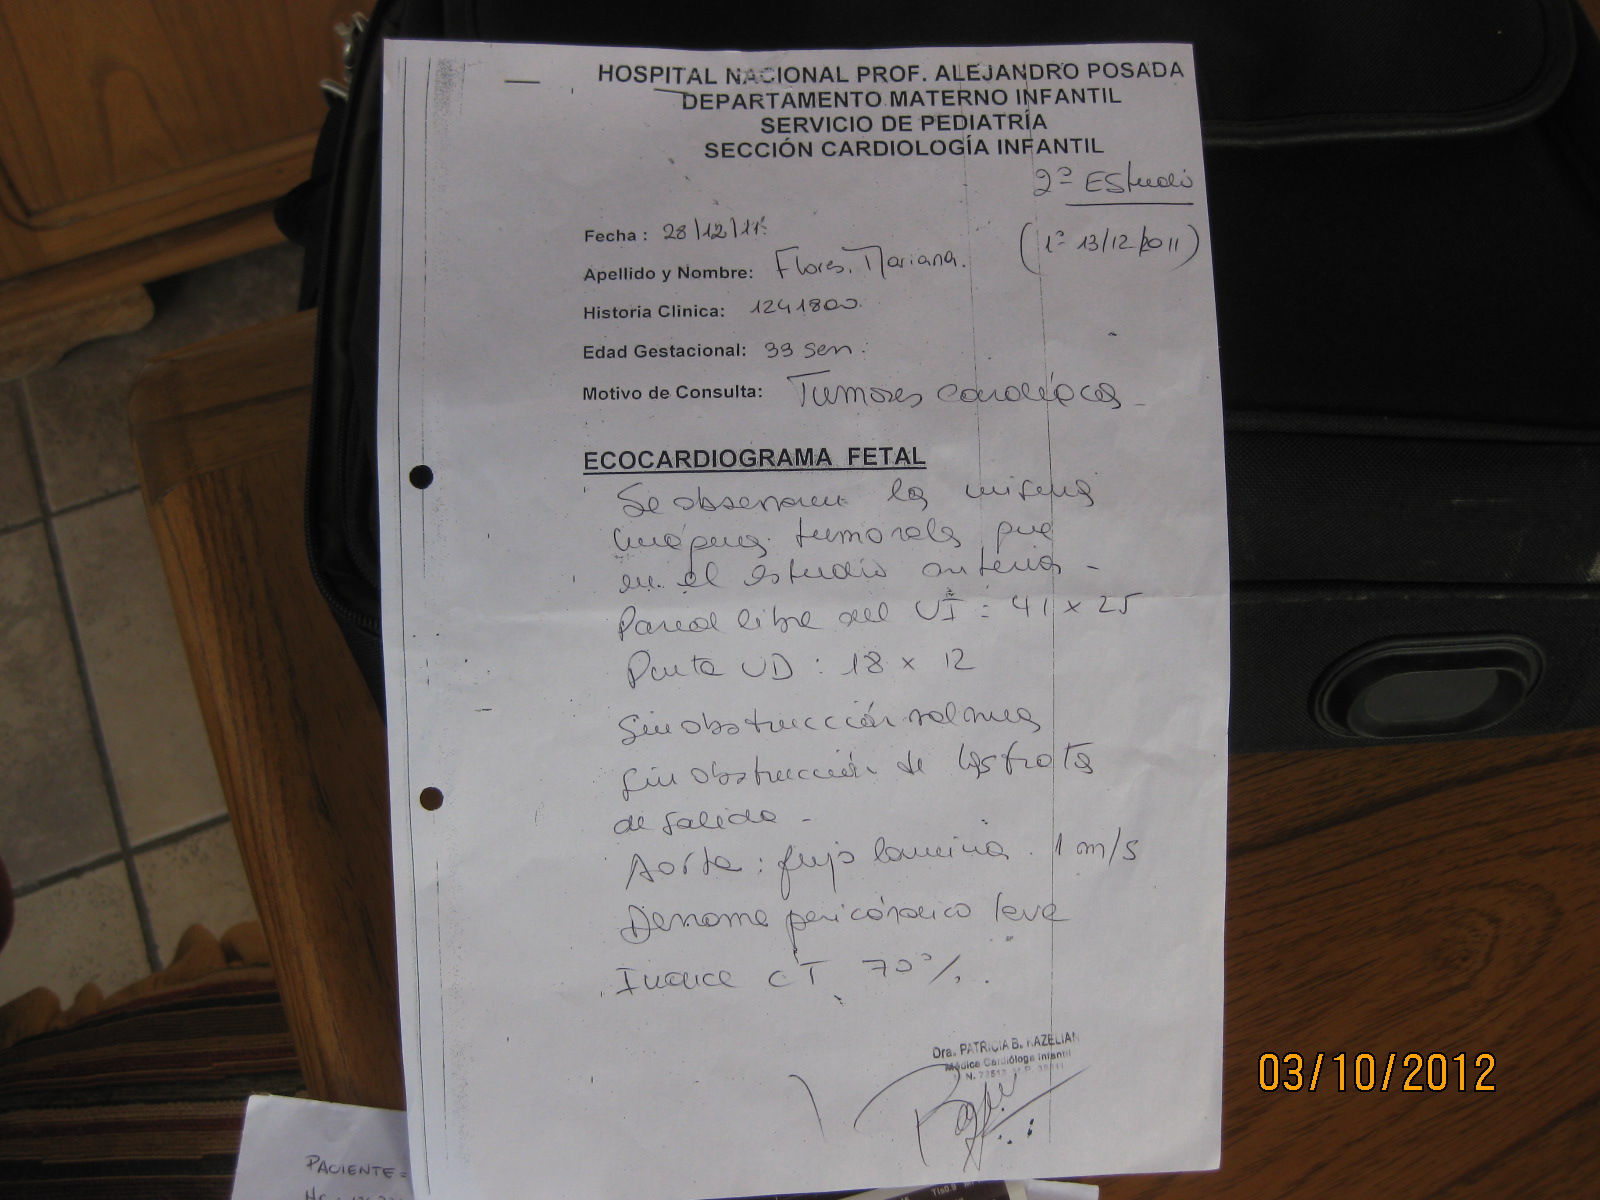 HOSPITAL NACIONAL PROF. ALEJANDRO POSADA
DEPARTAMENTO MATERNO INFANTIL
SERVICIO DE PEDIATRÍA
SECCIÓN CARDIOLOGÍA INFANTIL
2º Estudio
Fecha : 28/12/11
(1º 13/12/2011)
Apellido y Nombre: Flores, Mariana.
Historia Clinica: 1241800.
Edad Gestacional: 33 sem.
Motivo de Consulta: Tumores cardíacos -
ECOCARDIOGRAMA FETAL
Se observan las mismas
imágenes tumorales que
en el estudio anterior -
Pared libre del VI : 41 x 25
Punta VD : 18 x 12
Sin obstrucción valvular
Sin obstrucción de los tractos
de salida -
Aorta : flujo laminar. 1 m/s
Derrame pericárdico leve
Indice CT 70%.
Dra. PATRICIA B. KAZELIAN
Médica Cardióloga Infantil
03/10/2012
PACIENTE=